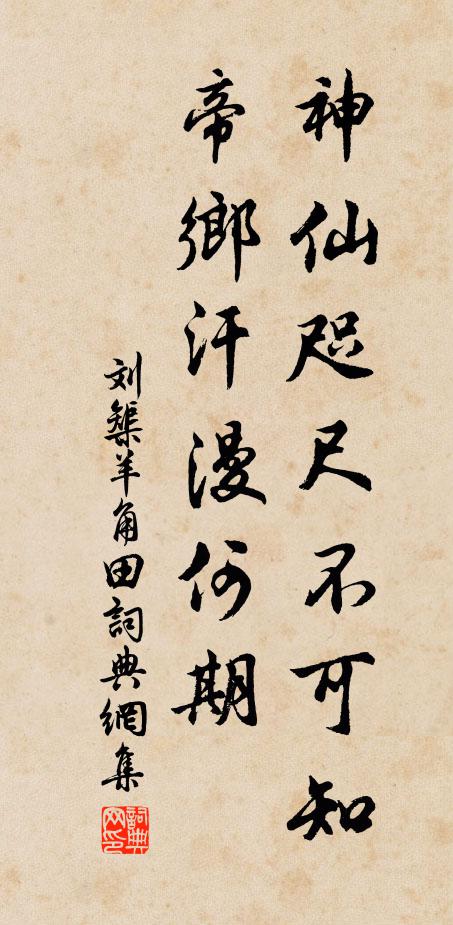 神仙咫尺不可知
帝鄉汗漫何期
刘槩羊角田詞典網集
詞典网印